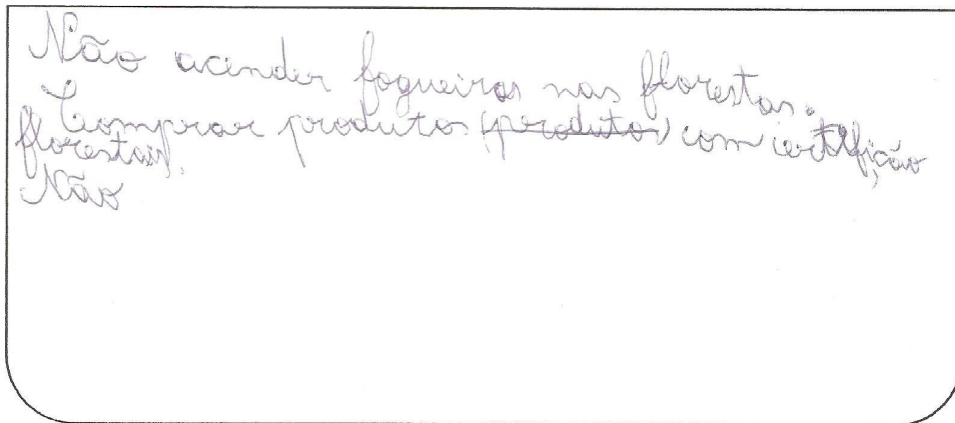 Não acender fogueiras nas florestas.
Comprar produtos (produtos) com certifição
florestais.
Não